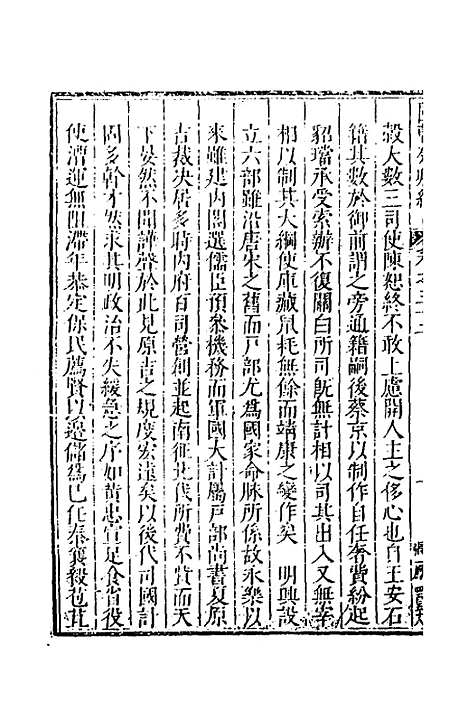 穀大數三司使陳恕終不敢上慮開人主之侈心也自王安石
籍其數於御前謂之旁通籍嗣後蔡京以制作自任奢費紛起
貂璫承受索辦不復關白所司旣無計相以司其出入又無宰
相以制其大綱使庫藏鼠耗無餘而靖康之變作矣 明興設
立六部雖沿唐宋之舊而戸部尤爲國家命脉所係故永樂以
來雖建內閣選儒臣預參機務而軍國大計屬戸部尚書夏原
吉裁决居多時內府百司營創並起南征北伐所費不貲而天
下晏然不聞譁聲於此見原吉之規度宏遠矣以後代司國計
固多幹才然求其明政治不失緩急之序如黃忠宣足食省役
使漕運無阻滯年恭定保民薦賢以邊儲爲己任秦襄毅范